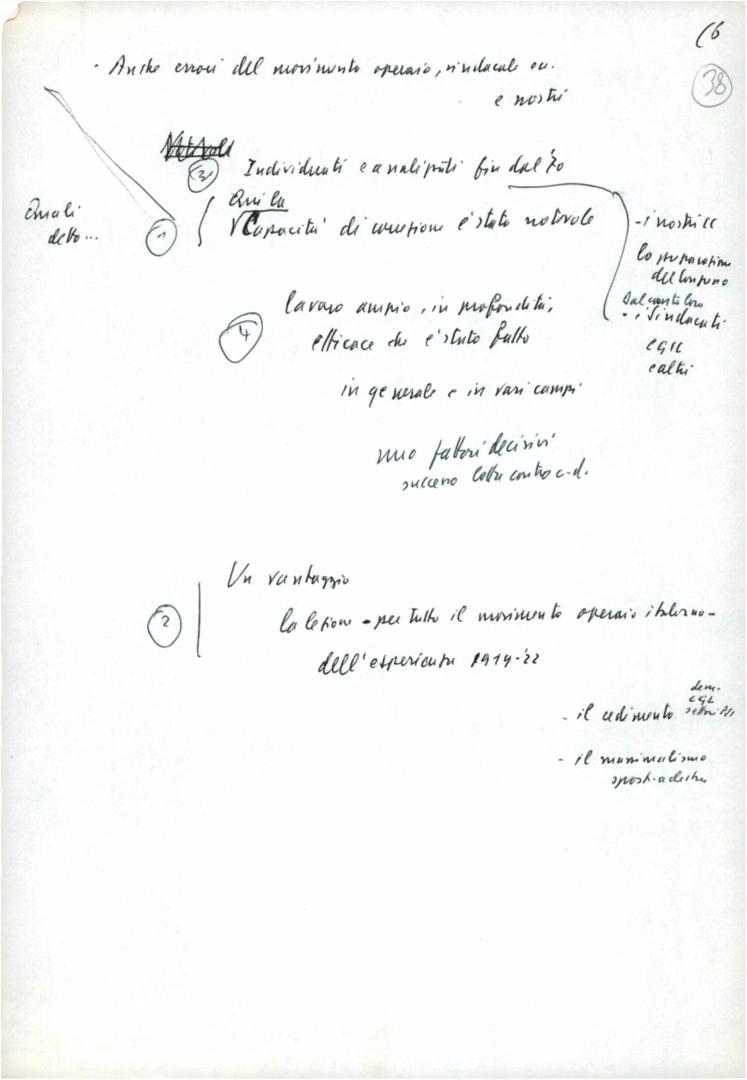 16
38
· Anche errori del movimento operaio, sindacale ecc.
e nostri
3
Individuati e analizzati fin dal '70
Quali
detto...
1
Qui la
Capacità di correzione è stata notevole
- i nostri CC
la preparazione
del Congresso
dal canto loro
- i sindacati
CGIL
e altri
4
lavoro ampio, in profondità,
efficace che è stato fatto
in generale e in vari campi
uno fattori decisivi
successo lotta contro c.d.
2
Un vantaggio
la lezione - per tutto il movimento operaio italiano -
dell'esperienza 1919-'22
- il cedimento
dem.
CGL
settori PSI
- il massimalismo
spost. a destra